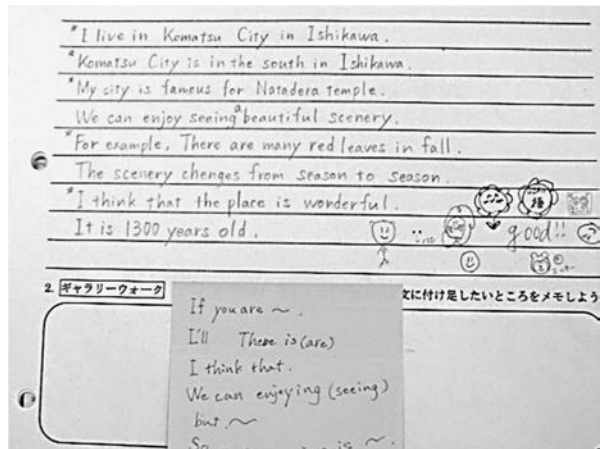 *I live in Komatsu City in Ishikawa.
*Komatsu City is in the south in Ishikawa.
*My city is famous for Natadera temple.
We can enjoy seeing a beautiful scenery.
*For example, There are many red leaves in fall.
The scenery chenges from season to season.
*I think that the place is wonderful.
It is 1300 years old.
good!!
2. ギャラリーウォーク
文に付け足したいところをメモしよう
If you are ～.
I'll There is (are)
I think that.
We can enjoying (seeing)
but ～
So
is ～.